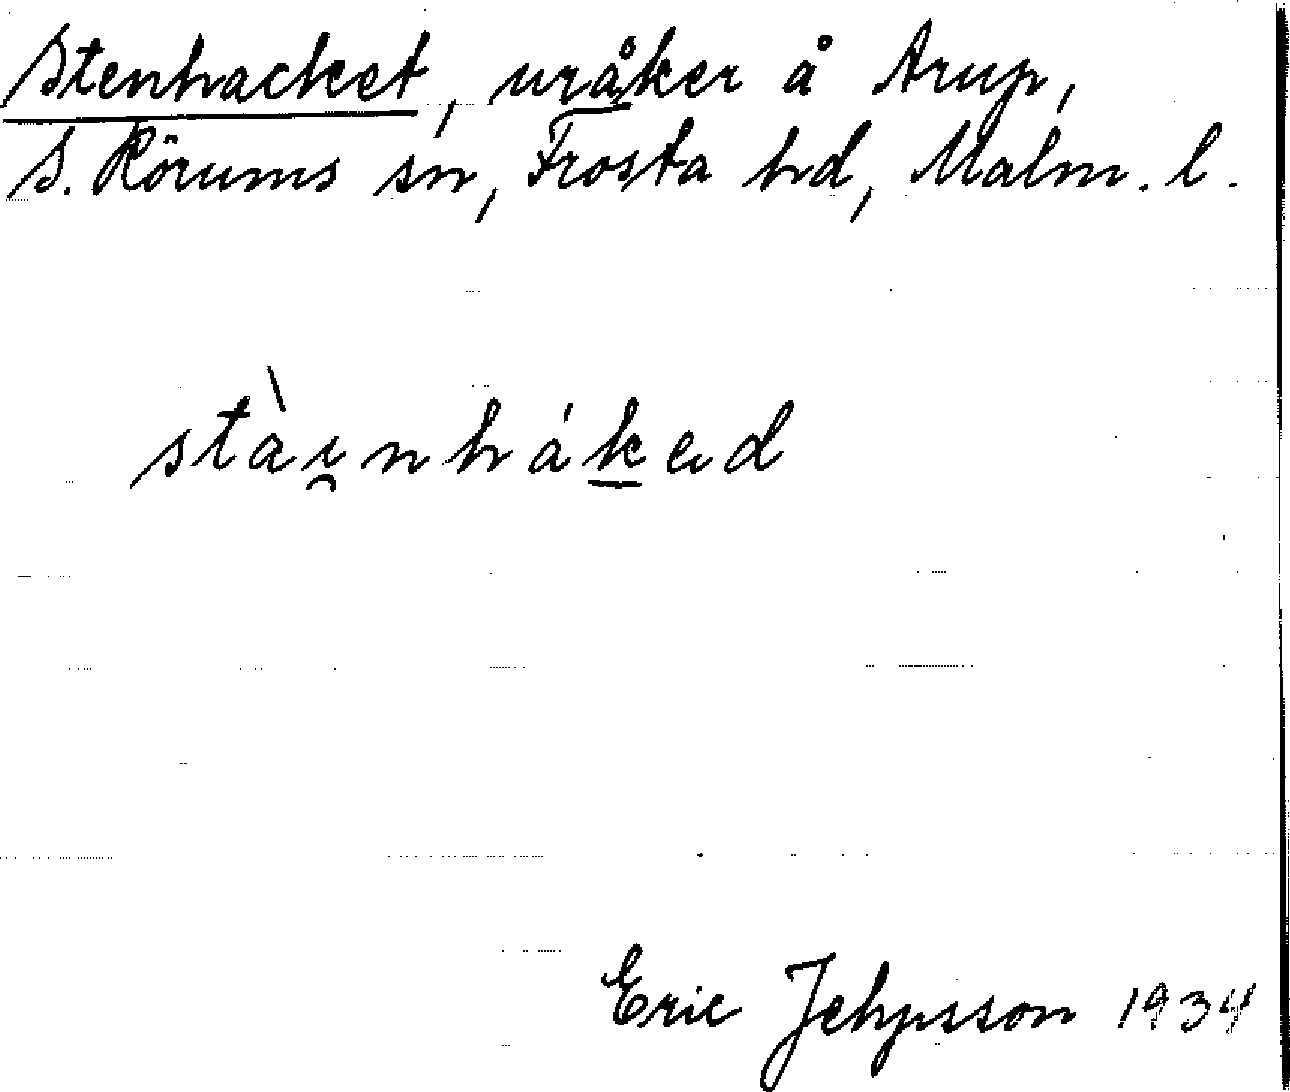 Stenhacket, uråker å Arup,
S. Rörums sn, Frosta hd, Malm. l.
stài̯nháked
Eric Jehpsson 1934